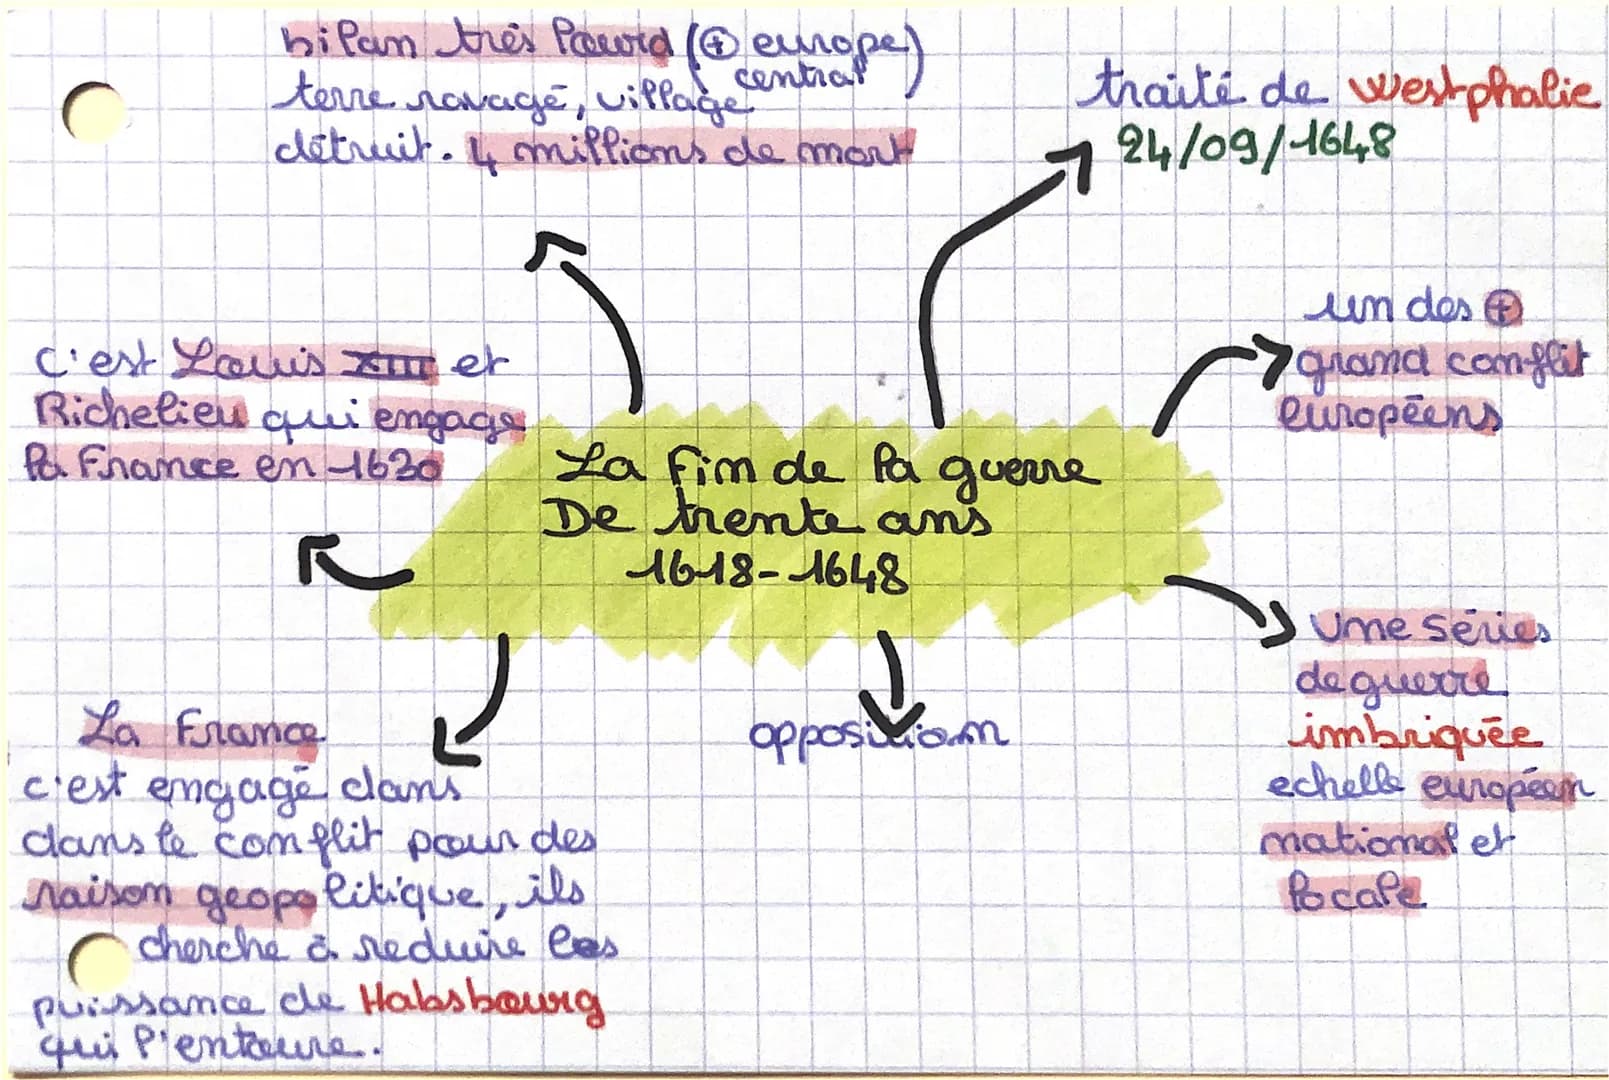 bilan très lourd (⊕ europe
central)
terre ravagé, village
détruit. 4 millions de mort
traité de westphalie
24/09/1648
un des ⊕
grand conflit
européens
c'est Louis XIII et
Richelieu qui engage
la France en 1630
La fin de la guerre
De trente ans
1618-1648
Une séries
de guerre
imbriquée
echelle européen
national et
locale
opposition
La France
c'est engagé dans
dans le conflit pour des
raison geopolitique, ils
cherche à reduire les
puissance de Habsbourg
qui l'entoure.